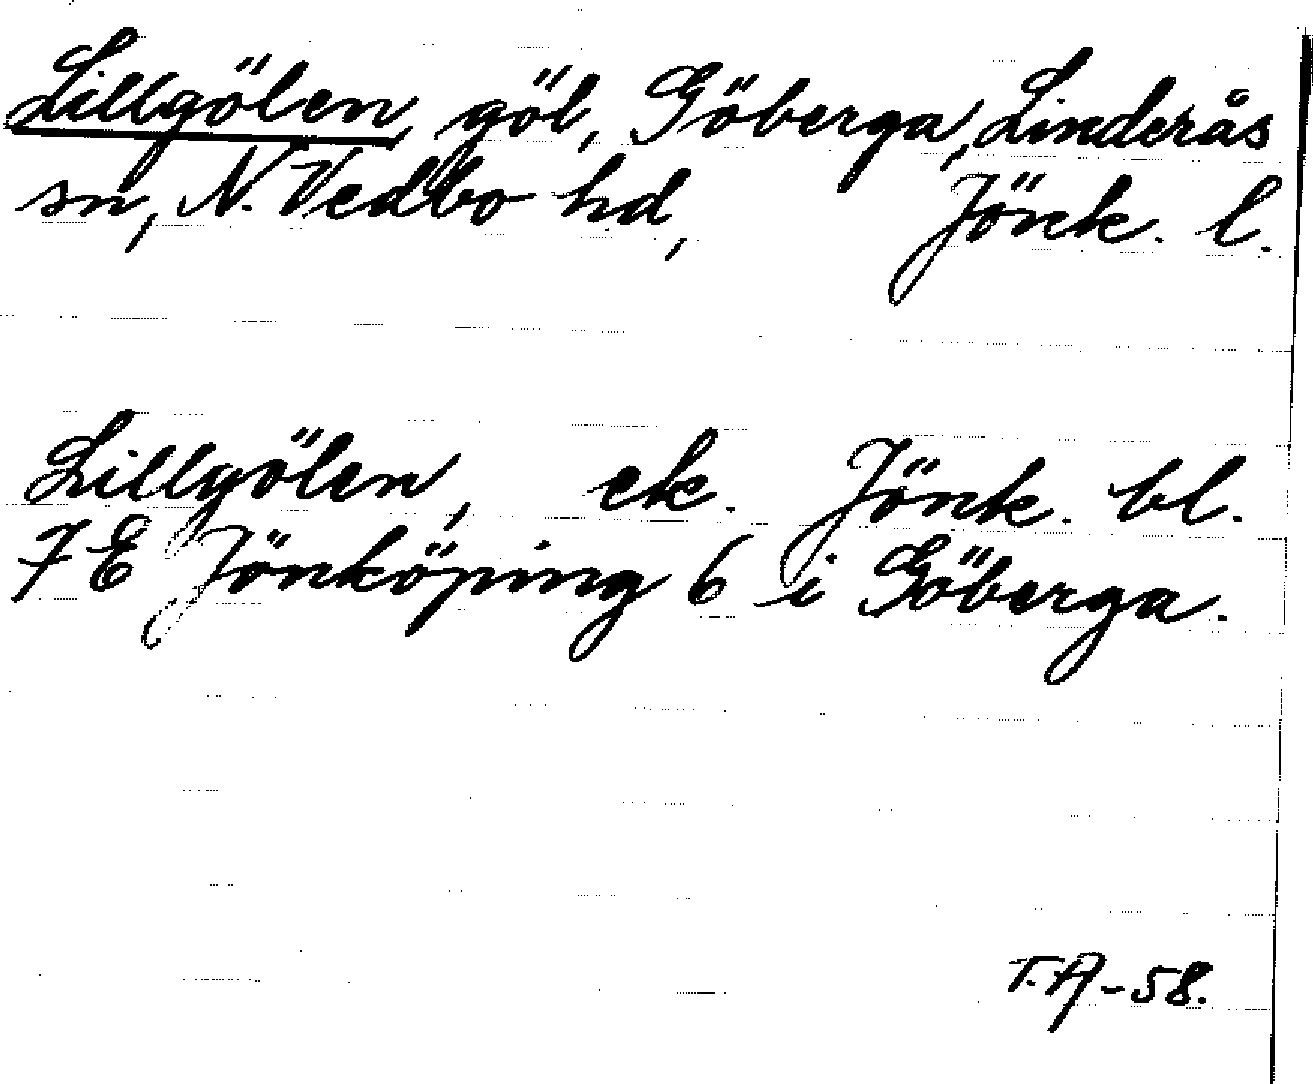 Lillgölen, göl, Göberga, Linderås
sn, N. Vedbo hd, Jönk. l.
Lillgölen, ek. Jönk. bl.
7 E Jönköping 6 i Göberga.
T.A-58.